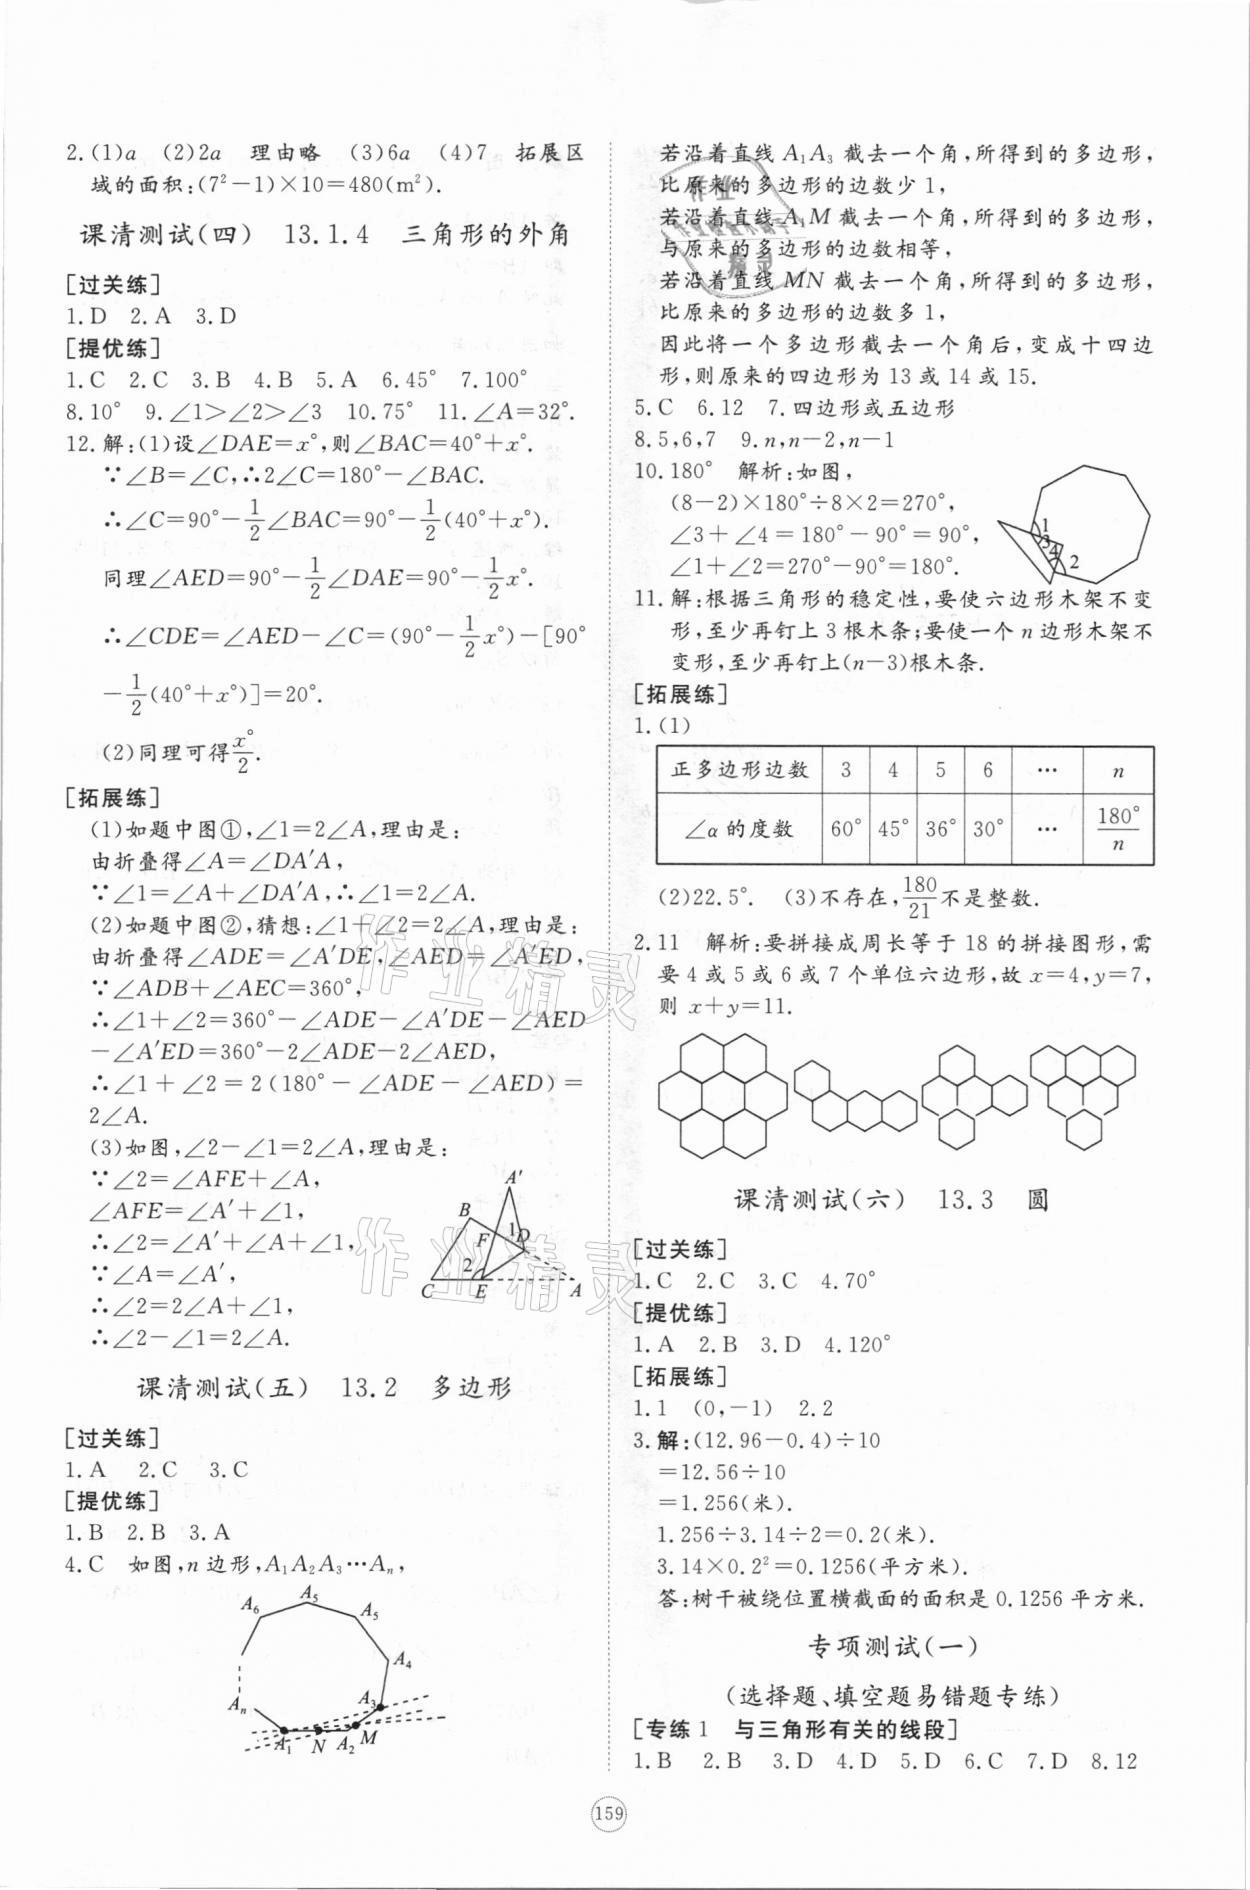 2.(1)a (2)2a 理由略 (3)6a (4)7 拓展区
域的面积:(7²-1)×10=480(m²).
课清测试(四) 13.1.4 三角形的外角
[过关练]
1.D 2.A 3.D
[提优练]
1.C 2.C 3.B 4.B 5.A 6.45° 7.100°
8.10° 9.∠1>∠2>∠3 10.75° 11.∠A=32°.
12.解:(1)设∠DAE=x°,则∠BAC=40°+x°.
∵∠B=∠C,∴2∠C=180°-∠BAC.
∴∠C=90°-1/2∠BAC=90°-1/2(40°+x°).
同理∠AED=90°-1/2∠DAE=90°-1/2x°.
∴∠CDE=∠AED-∠C=(90°-1/2x°)-[90°
-1/2(40°+x°)]=20°.
(2)同理可得x°/2.
[拓展练]
(1)如题中图①,∠1=2∠A,理由是:
由折叠得∠A=∠DA′A,
∵∠1=∠A+∠DA′A,∴∠1=2∠A.
(2)如题中图②,猜想:∠1+∠2=2∠A,理由是:
由折叠得∠ADE=∠A′DE,∠AED=∠A′ED,
∵∠ADB+∠AEC=360°,
∴∠1+∠2=360°-∠ADE-∠A′DE-∠AED
-∠A′ED=360°-2∠ADE-2∠AED,
∴∠1+∠2=2(180°-∠ADE-∠AED)=
2∠A.
(3)如图,∠2-∠1=2∠A,理由是:
∵∠2=∠AFE+∠A,
∠AFE=∠A′+∠1,
∴∠2=∠A′+∠A+∠1,
∵∠A=∠A′,
∴∠2=2∠A+∠1,
∴∠2-∠1=2∠A.
A′
B
F
1
D
2
C
E
A
课清测试(五) 13.2 多边形
[过关练]
1.A 2.C 3.C
[提优练]
1.B 2.B 3.A
4.C 如图,n边形,A₁A₂A₃…Aₙ,
A₅
A₆
A₅
A₄
A₃
Aₙ
A₁ N A₂ M
若沿着直线A₁A₃截去一个角,所得到的多边形,
比原来的多边形的边数少1,
若沿着直线A₁M截去一个角,所得到的多边形,
与原来的多边形的边数相等,
若沿着直线MN截去一个角,所得到的多边形,
比原来的多边形的边数多1,
因此将一个多边形截去一个角后,变成十四边
形,则原来的四边形为13或14或15.
5.C 6.12 7.四边形或五边形
8.5,6,7 9.n,n-2,n-1
10.180° 解析:如图,
(8-2)×180°÷8×2=270°,
∠3+∠4=180°-90°=90°,
∠1+∠2=270°-90°=180°.
1
3
4
2
11.解:根据三角形的稳定性,要使六边形木架不变
形,至少再钉上3根木条;要使一个n边形木架不
变形,至少再钉上(n-3)根木条.
[拓展练]
1.(1)
正多边形边数 3 4 5 6 … n
∠α的度数 60° 45° 36° 30° … 180°/n
(2)22.5°. (3)不存在,180/21不是整数.
2.11 解析:要拼接成周长等于18的拼接图形,需
要4或5或6或7个单位六边形,故x=4,y=7,
则x+y=11.
课清测试(六) 13.3 圆
[过关练]
1.C 2.C 3.C 4.70°
[提优练]
1.A 2.B 3.D 4.120°
[拓展练]
1.1 (0,-1) 2.2
3.解:(12.96-0.4)÷10
=12.56÷10
=1.256(米).
1.256÷3.14÷2=0.2(米).
3.14×0.2²=0.1256(平方米).
答:树干被绕位置横截面的面积是0.1256平方米.
专项测试(一)
(选择题、填空题易错题专练)
[专练1 与三角形有关的线段]
1.B 2.B 3.D 4.D 5.D 6.C 7.D 8.12
159
作业精灵
作业精灵